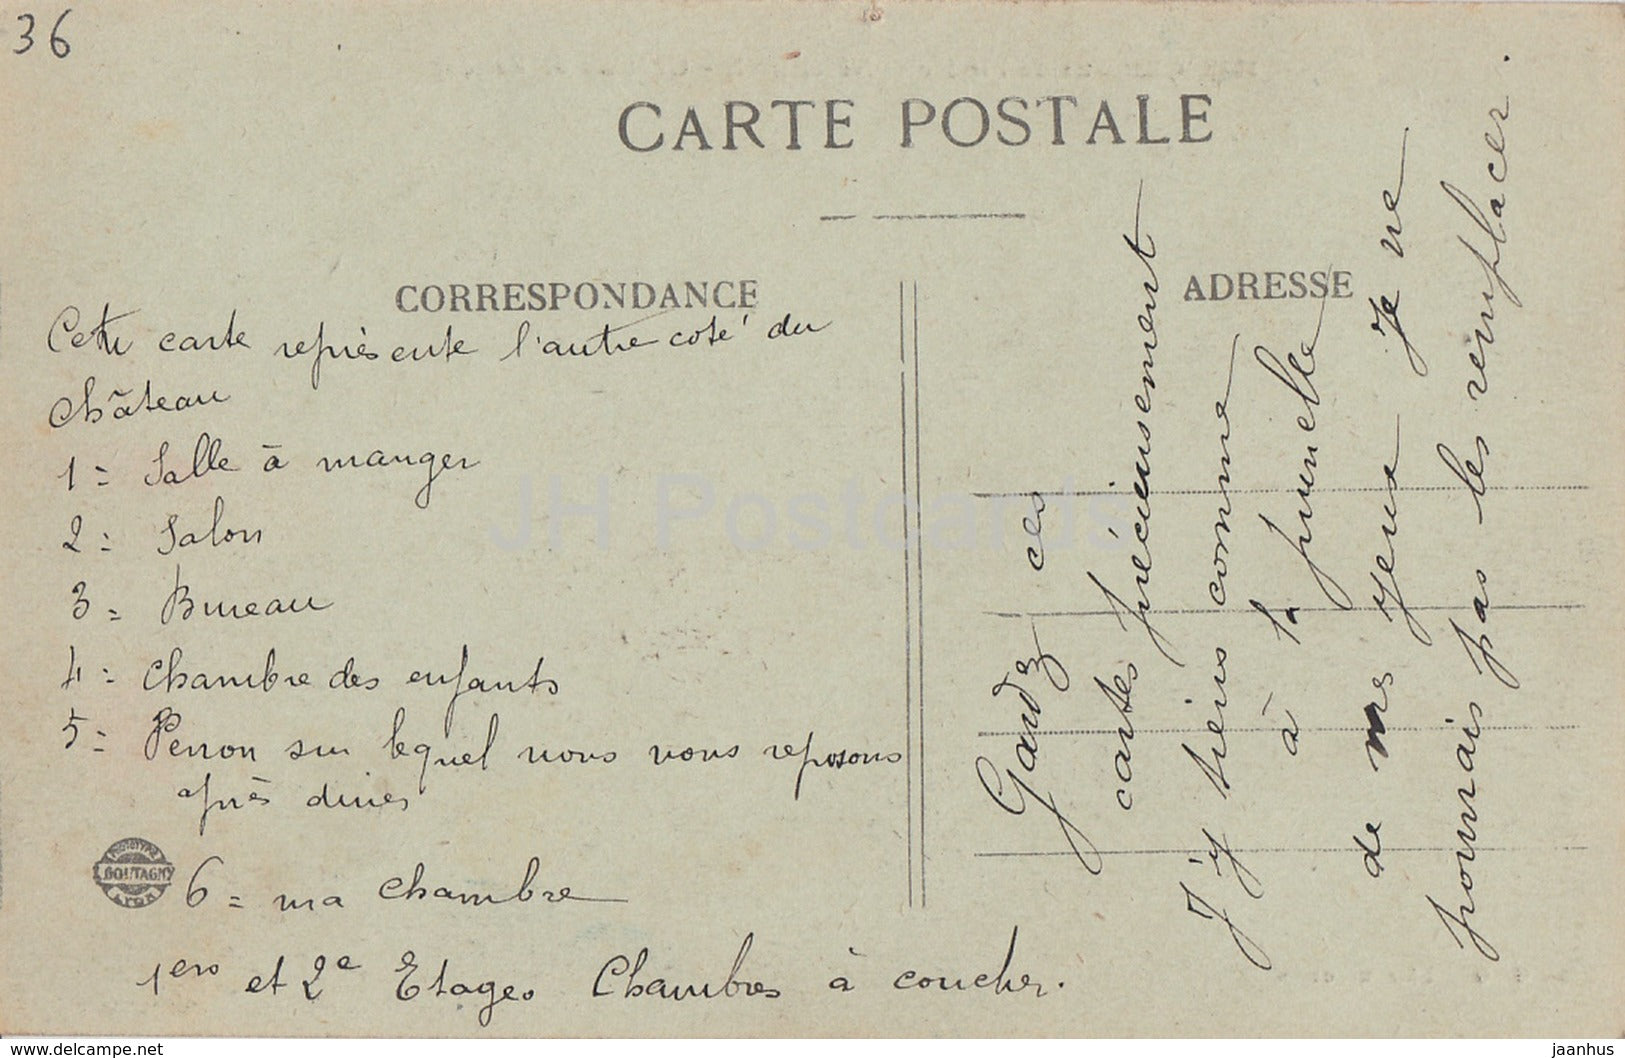 36
CARTE POSTALE
CORRESPONDANCE
ADRESSE
Cette carte représente l'autre coté du
Château
1= Salle à manger
2= Salon
3= Bureau
4= Chambre des enfants
5= Perron sur lequel nous nous reposons
après diner
PHOTOTYPIE
BOUTAGNY
LYON
6= ma chambre
1ers et 2e Etages Chambres à coucher.
Gardez ces
cartes précieusement
J'y tiens comme
à la prunelle
de mes yeux je ne
pourrais pas les remplacer.
JH Postcards
www.delcampe.net
jaanhus